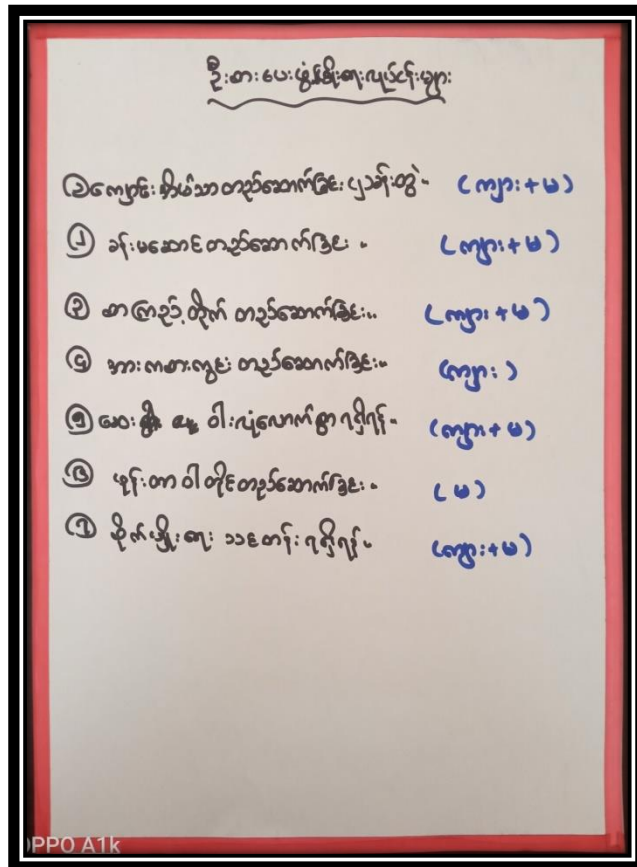 ဦးစားပေးဖွံ့ဖြိုးရေးလုပ်ငန်းများ
၁ ကျောင်းအိမ်သာတည်ဆောက်ခြင်း ၂ခန်းတွဲ။ (ကျား+မ)
၂ ခန်းမဆောင်တည်ဆောက်ခြင်း။ (ကျား+မ)
၃ စာကြည့်တိုက် တည်ဆောက်ခြင်း။ (ကျား+မ)
၄ အားကစားကွင်း တည်ဆောက်ခြင်း။ (ကျား)
၅ ဆေးဝါးလုံလောက်စွာရရှိရန်။ (ကျား+မ)
၆ ဖုန်းတာဝါတိုင်တည်ဆောက်ခြင်း။ (မ)
၇ စိုက်ပျိုးရေး သင်တန်းရရှိရန်။ (ကျား+မ)
OPPO A1k